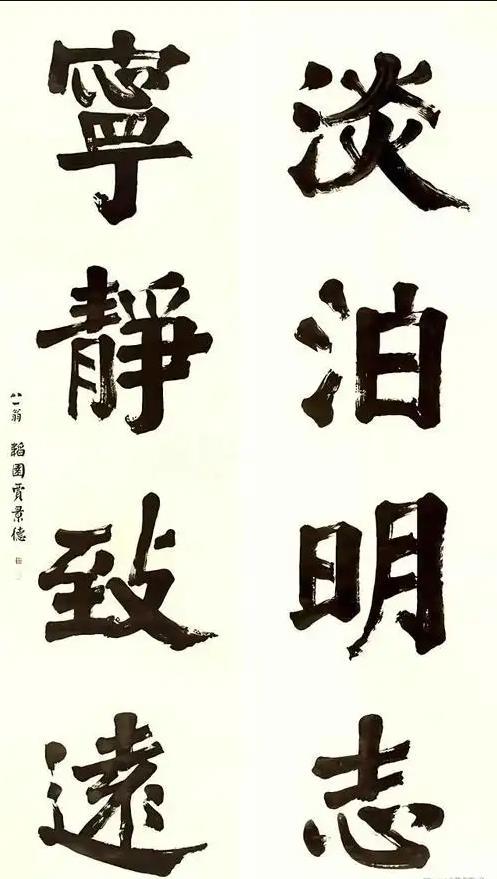 淡泊明志
寧靜致遠
八一翁 韜園賈景德